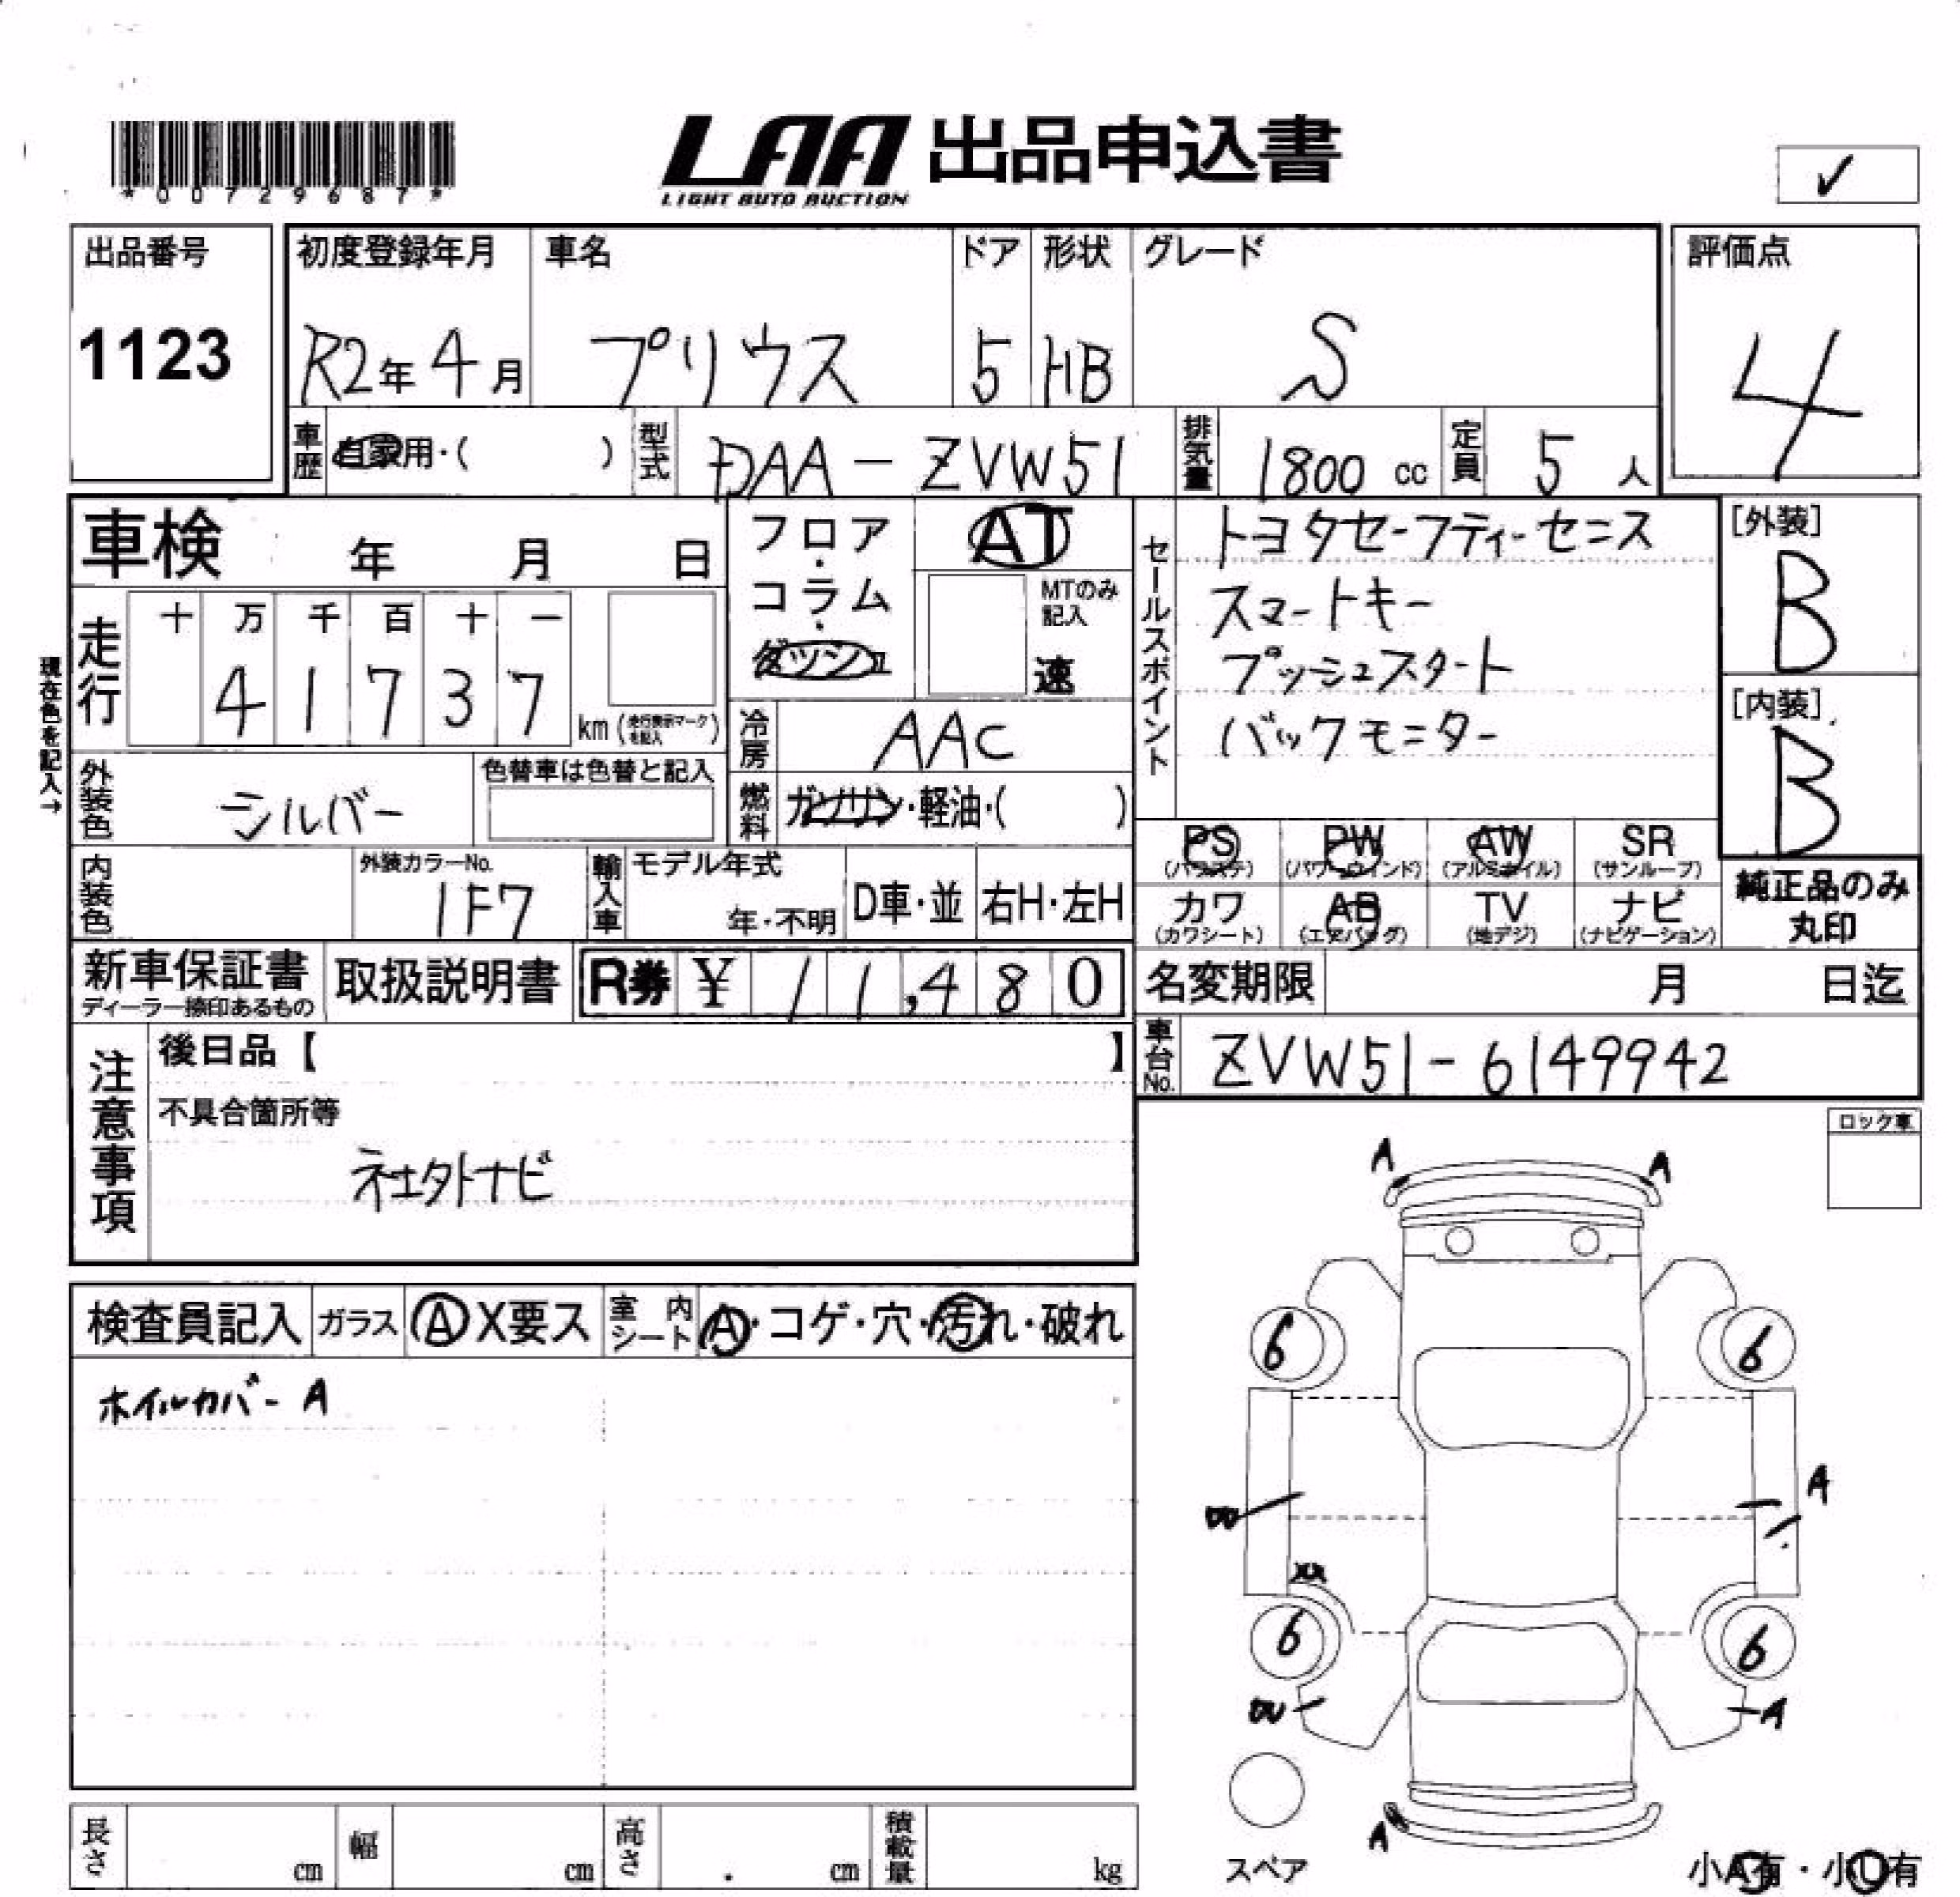 *00729687*
LAA 出品申込書
LIGHT AUTO AUCTION
✓
出品番号
1123
初度登録年月
R2年4月
車名
プリウス
ドア
5
形状
HB
グレード
S
評価点
4
車歴
自家用・( )
型式
DAA-ZVW51
排気量
1800 cc
定員
5 人
車検 年 月 日
フロア・コラム・ダッシュ
AT
MTのみ記入
速
セールスポイント
トヨタセーフティーセンス
スマートキー
プッシュスタート
バックモニター
[外装]
B
[内装]
B
現在色を記入→
走行
十 万 千 百 十 一
4 1 7 3 7
km (走行表示マークを記入)
冷房
AAC
外装色
シルバー
色替車は色替と記入
燃料
ガソリン・軽油・( )
PS (パワステ)
PW (パワーウインド)
AW (アルミホイル)
SR (サンルーフ)
カワ (カワシート)
AB (エアバッグ)
TV (地デジ)
ナビ (ナビゲーション)
純正品のみ丸印
内装色
外装カラーNo.
1F7
輸入車
モデル年式
年・不明
D車・並
右H・左H
新車保証書
ディーラー捺印あるもの
取扱説明書
R券 ¥ 11,480
名変期限 月 日迄
車台No.
ZVW51-6149942
注意事項
後日品【 】
不具合箇所等
ネェタトナビ
ロック車
検査員記入
ガラス
A X要ス
室内シート
A・コゲ・穴・汚れ・破れ
ホイルカバーA
A
A
6
6
A
XX
6
6
A
A
スペア
小A有・小U有
長さ cm
幅 cm
高さ . cm
積載量 kg